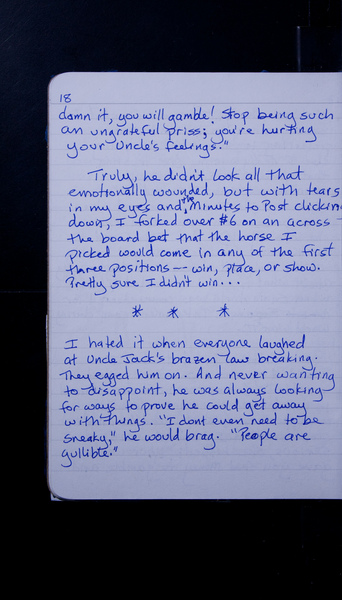 18
damn it, you will gamble! Stop being such
an ungrateful priss; you're hurting
your Uncle's feelings."
Truly, he didn't look all that
emotionally wounded, but with tears
in my eyes and the Minutes to Post clicking
down, I forked over $6 on an across-
the board bet that the horse I
picked would come in any of the first
three positions -- win, place, or show.
Pretty sure I didn't win...
* * *
I hated it when everyone laughed
at Uncle Jack's brazen law breaking.
They egged him on. And never wanting
to disappoint, he was always looking
for ways to prove he could get away
with things. "I dont even need to be
sneaky," he would brag. "People are
gullible."